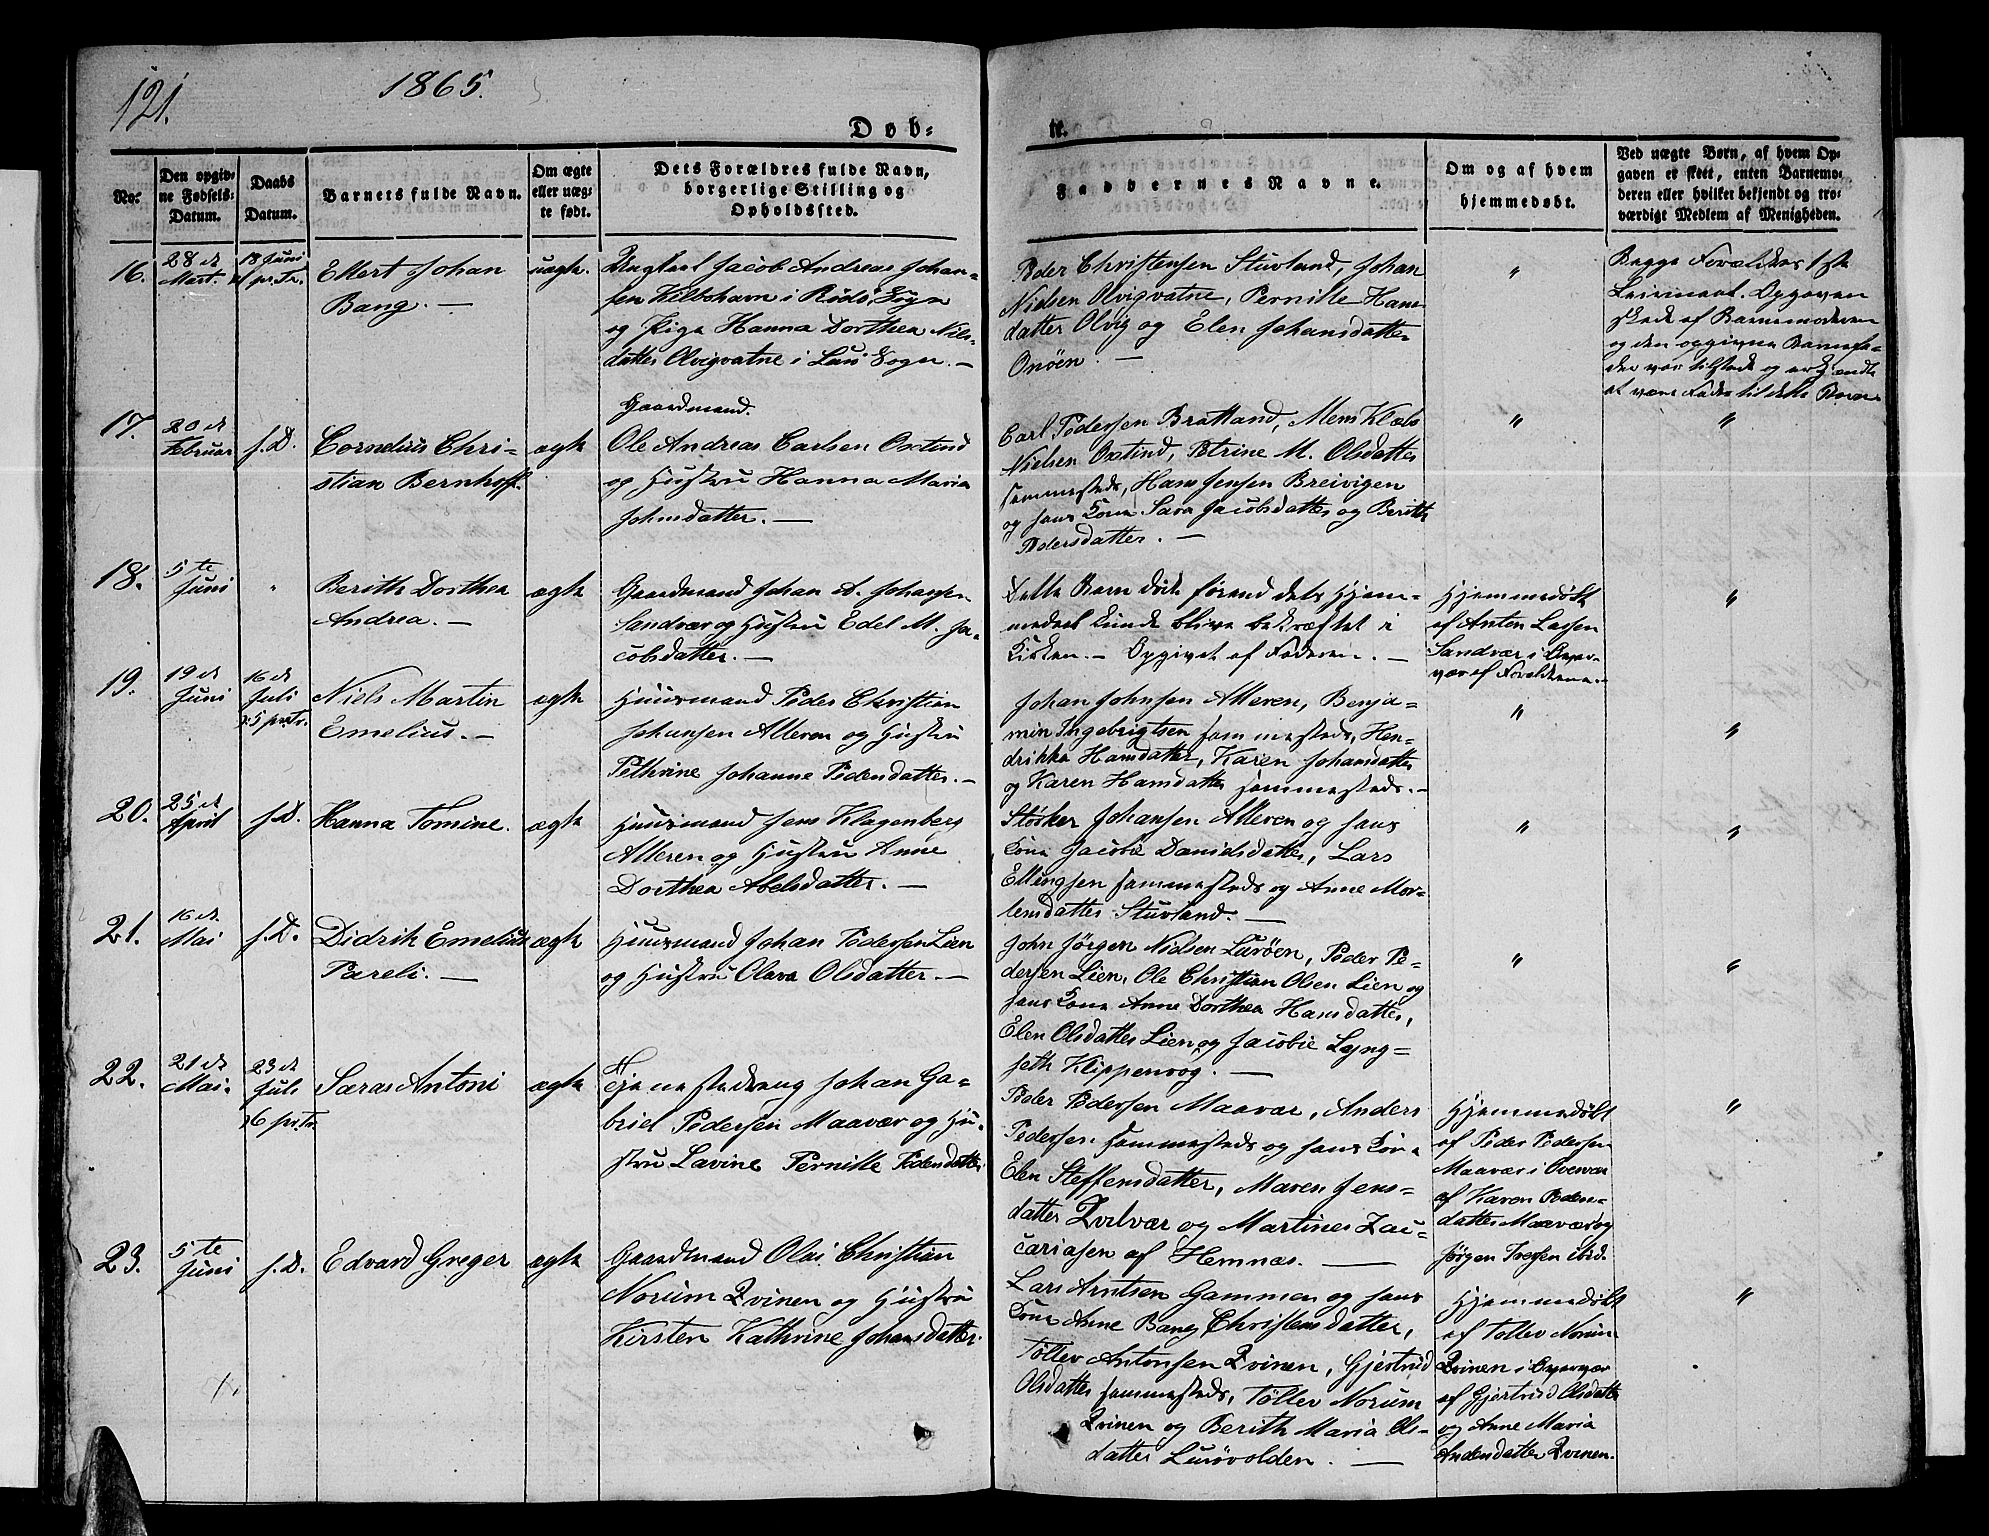 121.
1865.
Døb-
te.
No.
Den opgiv-
ne Fødsels-
Datum.
Daabs
Datum.
Barnets fulde Navn.
Om ægte
eller uæg-
te født.
Dets Forældres fulde Navn,
borgerlige Stilling og
Opholdssted.
Fadernes Navne.
Om og af hvem
hjemmedøbt.
Ved uægte Børn, af hvem Op-
gaven er skeet, enten Barnemo-
deren eller hvilket bekjendt og tro-
værdigt Medlem af Menigheden.
16.
28de
Mart.
18 Juni
Ellert Johan
Bang. —
uægte
Ungkarl Jacob Andreas Johan-
sen Kilbohavn i Rødø Sogn
og Pige Hanna Dorthea Niels-
datter Olvigvatne i Lurø Sogn. —
Peder Christensen Stuvland, Johan
Nielsen Olvigvatne, Pernille Hans
datter Olvig og Elen Johansdatter
Onøen. —
"
Begge Forældres 1ste
Leiermaal. Opgaven
skede af Barnemoderen
og den opgivne Barnefa-
der var tilstede og erkjendte
at være Fader til dette Barn
17.
20de
Februar
s. D.
Cornelius Chri-
stian Bernhoff.
ægte
Gaardmand.
Ole Andreas Carlsen Oxtind
og Hustru Hanna Maria
Johnsdatter. —
Carl Pedersen Bratland, Mons Klæbo
Nielsen Oxtind, Petrine M. Olsdatter
sammesteds, Hans Jensen Breivigen
og hans Kone Sara Jacobsdatter og Berith
Pedersdatter. —
"
"
18.
5te
Juni
"
Berith Dorthea
Andrea. —
ægte
Gaardmand Johan A. Johansen
Sandvær og Hustru Edel M. Ja-
cobsdatter. —
Dette Barn døde førend dets Hjem-
medaab kunde blive bekræftet i
Kirken. — Opgivet af Faderen. —
Hjemmedøbt
af Anton Lassen
Sandvær i Over-
vær af Forældrene. —
"
19.
19de
Juni
16de
Juli
5 p. Tr.
Niels Martin
Emelius. —
ægte
Huusmand Peder Christian
Johansen Alleren og Hustru
Pethrine Johanne Pedersdatter. —
Johan Johnsen Alleren, Benja-
min Ingebrigtsen sammesteds, Hen-
drikke Hansdatter, Karen Johansdatter
og Karen Hansdatter sammesteds. —
"
"
20.
25de
April
s. D.
Hanna Tomine.
ægte
Huusmand Jens Klagenberg
Alleren og Hustru Anne
Dorthea Abelsdatter. —
Størker Johansen Alleren og hans
Kone Jacobie Danielsdatter, Lars
Ellingsen sammesteds og Anne Mor-
tensdatter Stuvland. —
"
"
21.
16de
Mai
s. D.
Didrik Emelius
Pareli. —
ægte
Huusmand Johan Pedersen Lien
og Hustru Olava Olsdatter. —
John Jørgen Nielsen Lurøen, Peder Pe-
dersen Lien, Ole Christian Olsen Lien og
hans Kone Anne Dorthea Hansdatter,
Elen Olsdatter Lien og Jacobie Lyng-
seth Klippenvog. —
"
"
22.
21de
Mai.
23de
Juli
6 p. Tr.
Saras Antoni
ægte
Johan Ga-
briel Pedersen Maavær og Hu-
stru Lavine Pernille Pedersdatter
Peder Pedersen Maavær, Anders
Pedersen sammesteds og hans Kone
Elen Steffensdatter, Maren Jens-
datter Qvilvær og Martines Zac-
cariasen af Hemnæs. —
Hjemmedøbt
af Peder Pedersen
Maavær i Overvær
af Karen Peders-
datter Maavær og
Jørgen Iversen ibid.
"
23.
5te
Juni
s. D.
Edvard Greger
ægte
Gaardmand Olai Christian
Norum Qvinen og Hustru
Kirsten Kathrine Johansdatter.
Lars Arntsen Gammen og hans
Kone Anne Bang Christensdatter,
Tollev Antonsen Qvinen, Gjertrud
Olsdatter sammesteds, Tøllev Norum
Qvinen og Berith Maria Ols-
datter Lurøvolden. —
Hjemmedøbt
af Tollev Norum
Qvinen i Overvær
af Gjertrud Olsdatter
og Anne Maria
Andersdatter Qvinen.
"